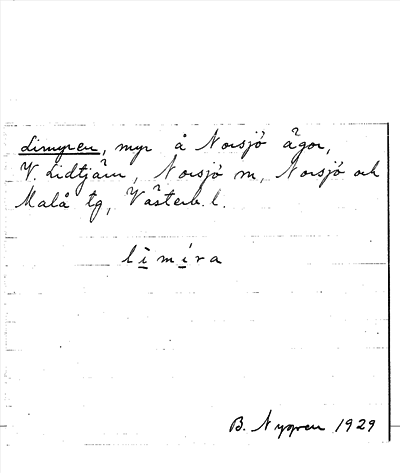 Limyren, myr å Norsjö ägor,
V. Lidtjärn, Norsjö m, Norsjö och
Malå tg, Västerb. l.
limira
B. Nygren 1929